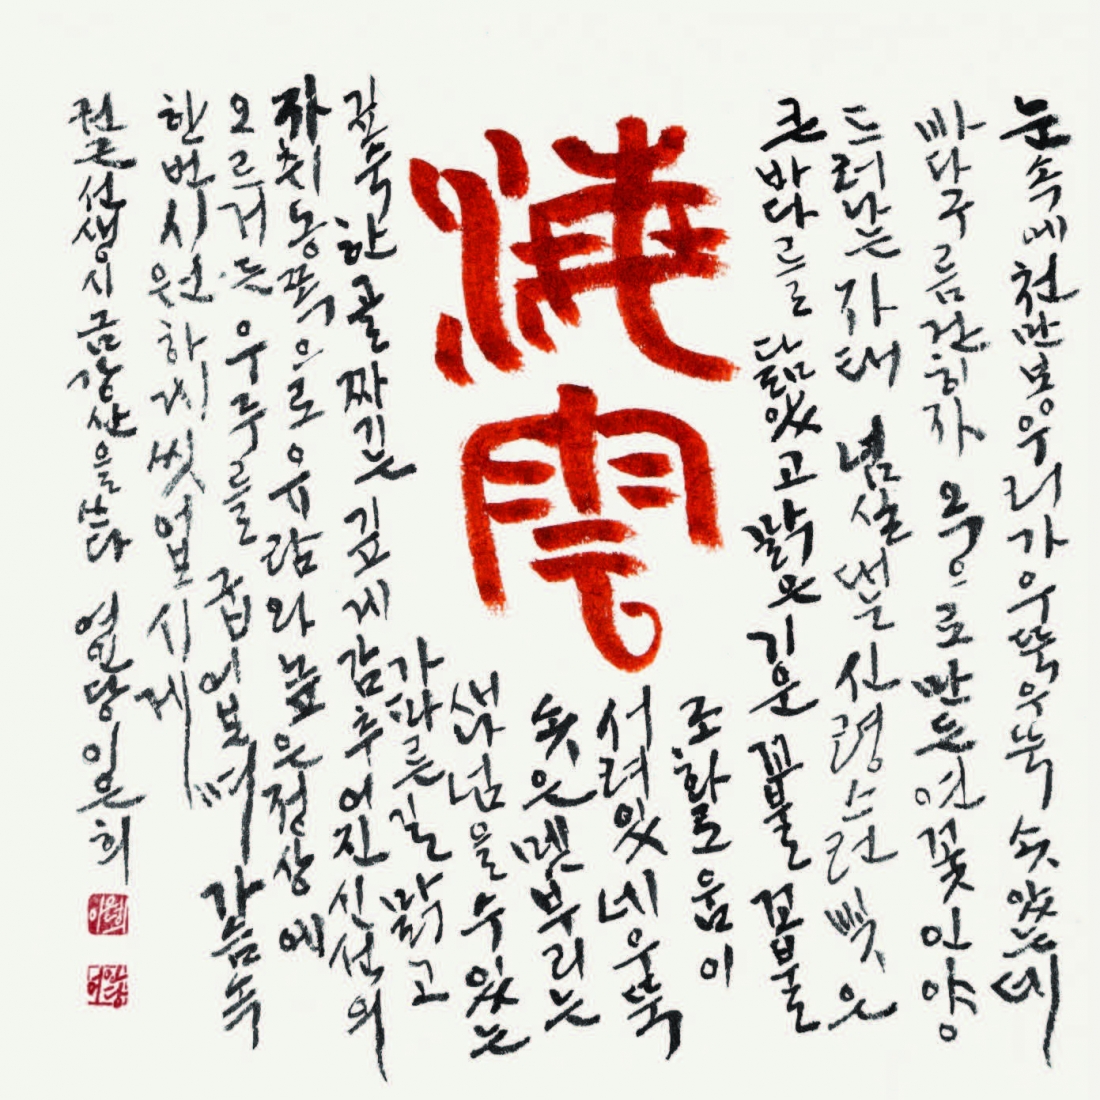 눈속에천만봉우리가우뚝우뚝솟았는데
바다구름걷히자 옥으로만든연꽃인양
드러나는자태 넘실 신령스런빛은
큰바다를 닮았고맑은기운 꾸불꼬불
海雲
조화로움이
서려있네우뚝
솟은멧부리는
새나넘을수있는
가파른길맑고
깊숙한골짜기는깊게감추어진신선의
자취동쪽으로유람와높은정상에
오르거든 우주를 굽어보며 가슴속
한번시원하게씻어보시게
권근선생시금강산을쓰다 연당이은희